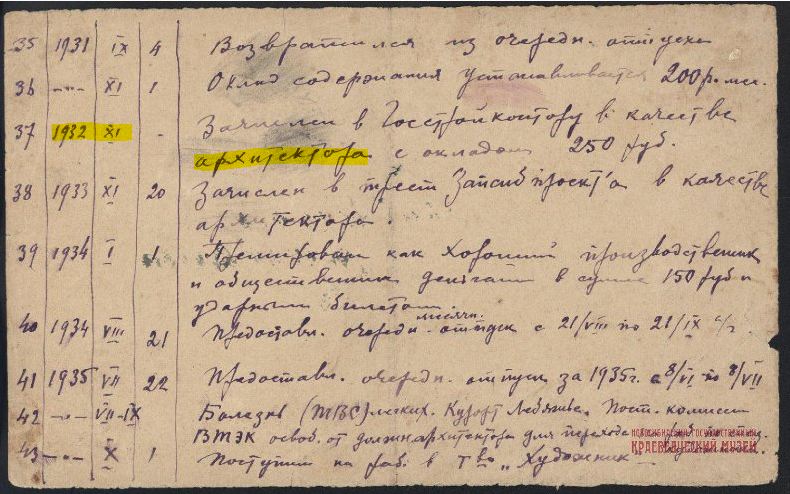 35 1931 IX 4 Возвратился из очередн. отпуска
36 -"- XI 1 Оклад содержания устанавливается 200 р. мес.
37 1932 XI - Зачислен в Госстройконтору в качестве
архитектора с окладом 250 руб.
38 1933 XI 20 Зачислен в трест "Запсибпроект"а в качестве
архитектора.
39 1934 I 1 Премирован как хороший производственник
и общественник деньгами в сумме 150 руб и
ударным билетом.
40 1934 VIII 21 Предоставл. очередн. месячн. отпуск с 21/VIII по 21/IX с/г.
41 1935 VII 22 Предоставл. очередн. отпуск за 1935г. с 8/VI по 8/VII
42 -"- VII-IX Болезнь (ТВС) легких. Курорт Лебяжье. Пост. комиссии
ВТЭК освоб. от должн. архитектора для перехода
НОВОСИБИРСКИЙ ГОСУДАРСТВЕННЫЙ
КРАЕВЕДЧЕСКИЙ МУЗЕЙ
43 -"- X 1 Поступил на раб. в Т-во "Художник"